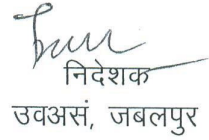 निदेशक
उवअसं, जबलपुर